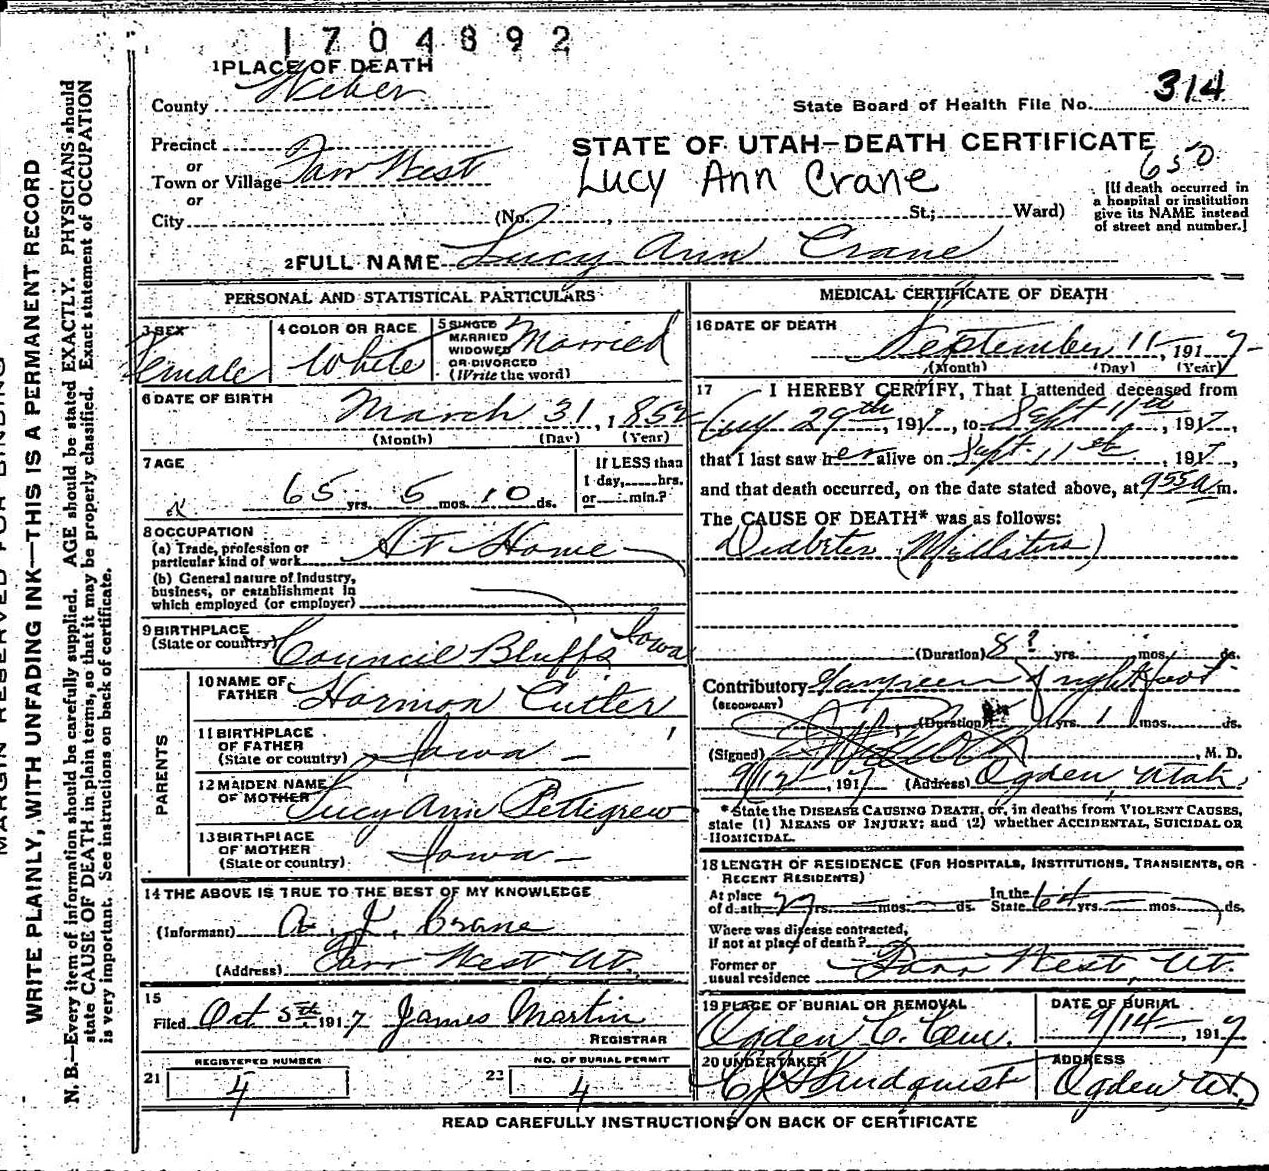 1704892
1 PLACE OF DEATH
County Weber
State Board of Health File No. 314
Precinct
or
Town or Village Farr West
or
City (No. , St.; Ward)
STATE OF UTAH—DEATH CERTIFICATE
650
Lucy Ann Crane
[If death occurred in
a hospital or institution
give its NAME instead
of street and number.]
2 FULL NAME Lucy Ann Crane
PERSONAL AND STATISTICAL PARTICULARS
3 SEX
Female
4 COLOR OR RACE
White
5 SINGLE
MARRIED
WIDOWED
OR DIVORCED
(Write the word)
Married
6 DATE OF BIRTH
March 31, 1852
(Month) (Day) (Year)
7 AGE
65 yrs. 5 mos. 10 ds.
If LESS than
1 day, hrs.
or min.?
8 OCCUPATION
(a) Trade, profession or
particular kind of work At Home
(b) General nature of Industry,
business, or establishment in
which employed (or employer)
9 BIRTHPLACE
(State or country) Council Bluffs Iowa
PARENTS
10 NAME OF
FATHER Harmon Cutler
11 BIRTHPLACE
OF FATHER
(State or country) Iowa
12 MAIDEN NAME
OF MOTHER Lucy Ann Pettigrew
13 BIRTHPLACE
OF MOTHER
(State or country) Iowa
14 THE ABOVE IS TRUE TO THE BEST OF MY KNOWLEDGE
(Informant) A. J. Crane
(Address) Farr West, Ut.
15
Filed Oct 5th, 1917 James Martin
REGISTRAR
REGISTERED NUMBER
21 4
NO. OF BURIAL PERMIT
22 4
MEDICAL CERTIFICATE OF DEATH
16 DATE OF DEATH
September 11, 1917
(Month) (Day) (Year)
17 I HEREBY CERTIFY, That I attended deceased from
Aug 29th, 1917, to Sept 11th, 1917,
that I last saw her alive on Sept. 11th, 1917,
and that death occurred, on the date stated above, at 955 a m.
The CAUSE OF DEATH* was as follows:
Diabetes (Mellitus)
(Duration) 8? yrs. mos. ds.
Contributory Gangreen of right foot
(SECONDARY)
(Duration) yrs. 1 mos. ds.
(Signed) , M. D.
9/12, 1917 (Address) Ogden Utah.
*State the DISEASE CAUSING DEATH, or, in deaths from VIOLENT CAUSES,
state (1) MEANS OF INJURY; and (2) whether ACCIDENTAL, SUICIDAL OR
HOMICIDAL.
18 LENGTH OF RESIDENCE (FOR HOSPITALS, INSTITUTIONS, TRANSIENTS, OR
RECENT RESIDENTS)
At place
of death yrs. mos. ds.
In the
State 64 yrs. mos. ds.
Where was disease contracted,
if not at place of death?
Former or
usual residence Farr West, Ut.
19 PLACE OF BURIAL OR REMOVAL
Ogden C. Cem.
DATE OF BURIAL
9/14, 1917
20 UNDERTAKER
ADDRESS
Ogden, Ut.
READ CAREFULLY INSTRUCTIONS ON BACK OF CERTIFICATE
MARGIN RESERVED FOR BINDING
WRITE PLAINLY, WITH UNFADING INK—THIS IS A PERMANENT RECORD
N. B.—Every item of information should be carefully supplied. AGE should be stated EXACTLY. PHYSICIANS should
state CAUSE OF DEATH in plain terms, so that it may be properly classified. Exact statement of OCCUPATION
is very important. See instructions on back of certificate.